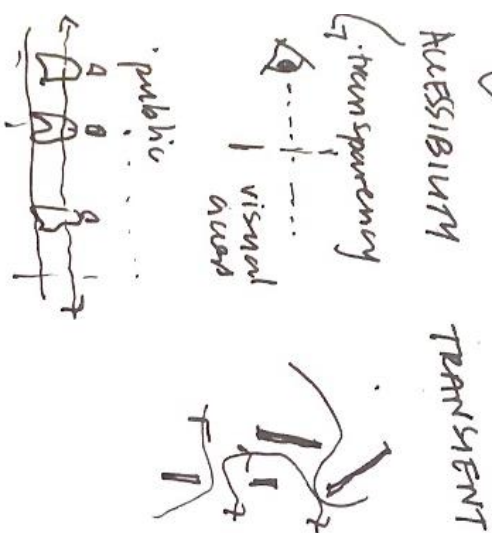 ACCESSIBILITY
transparency
visual
access
public
TRANSIENT